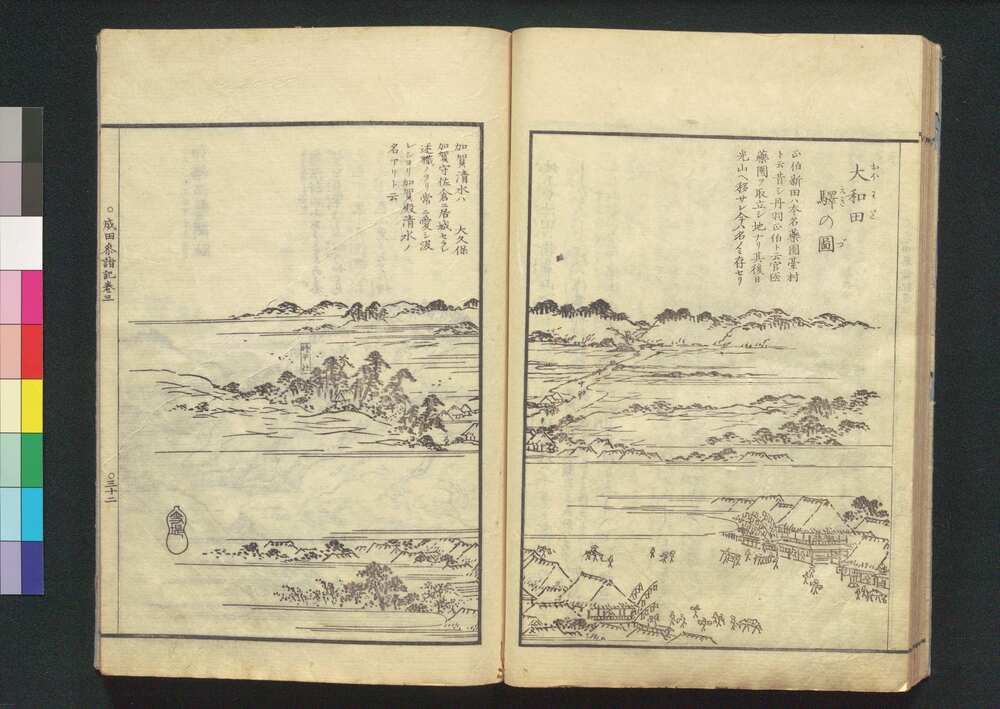 大和田
おほわだ
驛の圖
えき づ
正伯新田ハ本名藥園臺村
ト云昔シ丹羽正伯ト云官医
藥園ヲ取立シ地ナリ其後日
光山ヘ移サレ今ハ名ノミ存セリ
加賀清水ハ 大久保
加賀守佐倉ニ居城セラレ
述職ノヲリ常ニ愛シ汲
レシヨリ加賀殿清水ノ
名アリト云
成田參詣記卷三
○三十二